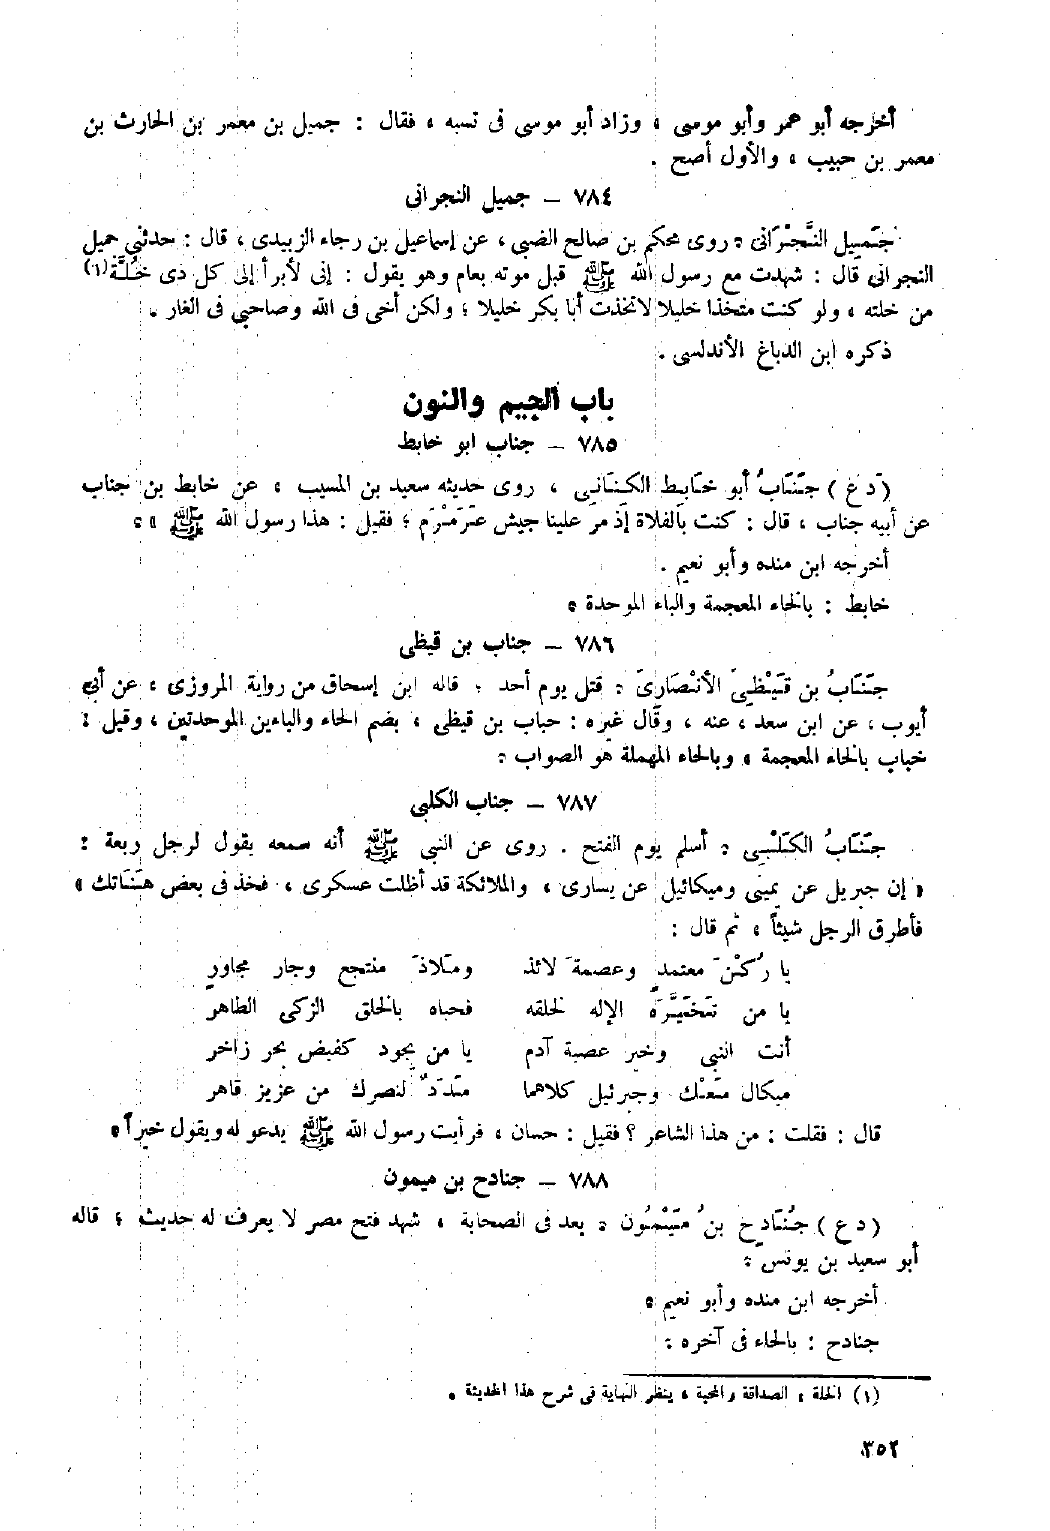 أخرجه أبو عمر وأبو موسى ، وزاد أبو موسى فى نسبه ، فقال : جميل بن معمر بن الحارث بن
معمر بن حبيب ، والأول أصح .
٧٨٤ – جميل النجرانى
جَمِيل النَّجْرَانى . روى محكم بن صالح الضبى ، عن إسماعيل بن رجاء الزبيدى ، قال : حدثنى جميل
النجرانى قال : شهدت مع رسول الله ﷺ قبل موته بعام وهو يقول : إنى لأبرأ إلى كل ذى خُلَّة(١)
من خلته ، ولو كنت متخذا خليلا لاتخذت أبا بكر خليلا ؛ ولكن أخى فى الله وصاحبى فى الغار .
ذكره ابن الدباغ الأندلسى .
باب الجيم والنون
٧٨٥ – جناب ابو خابط
( د ع ) جَنَابُ أبو خَابِط الكِنَانِى ، روى حديثه سعيد بن المسيب ، عن خابط بن جناب
عن أبيه جناب ، قال : كنت بالفلاة إذ مرَ علينا جيش عَرَمْرَم ؛ فقيل : هذا رسول الله ﷺ » .
أخرجه ابن منده وأبو نعيم .
خابط : بالخاء المعجمة والباء الموحدة .
٧٨٦ – جناب بن قيظى
جَنَابُ بن قَيْظِىّ الأنْصَارِىّ . قتل يوم أحد ؛ قاله ابن إسحاق من رواية المروزى ، عن أبى
أيوب ، عن ابن سعد ، عنه ، وقال غيره : حباب بن قيظى ، بضم الحاء والباءين الموحدتين ، وقيل :
خباب بالخاء المعجمة ، وبالحاء المهملة هو الصواب .
٧٨٧ – جناب الكلبى
جَنَابُ الكَلْبِى . أسلم يوم الفتح . روى عن النبى ﷺ أنه سمعه يقول لرجل ربعة :
« إن جبريل عن يمينى وميكائيل عن يسارى ، والملائكة قد أظلت عسكرى ، فخذ فى بعض هَنَاتك »
فأطرق الرجل شيئاً ، ثم قال :
يا رُكْنَ معتمدٍ وعصمةَ لائذ ومَلاذَ منتجع وجار مجاورِ
يا من تَخَيَّرَه الإله لخلقه فحباه بالخلق الزكى الطاهر
أنت النبى وخير عصبة آدم يا من يجود كفيض بحر زاخر
ميكال مَعْك وجبرئيل كلاهما مَدَدٌ لنصرك من عزيز قاهر
قال : فقلت : من هذا الشاعر ؟ فقيل : حسان ، فرأيت رسول الله ﷺ يدعو له ويقول خيراً .
٧٨٨ – جنادح بن ميمون
( د ع ) جُنَادِح بنُ مَيْمُون . يعد فى الصحابة ، شهد فتح مصر لا يعرف له حديث ؛ قاله
أبو سعيد بن يونس .
أخرجه ابن منده وأبو نعيم .
جنادح : بالحاء فى آخره .
(١) الخلة ، الصداقة والمحبة ، ينظر النهاية فى شرح هذا الحديثة .
٣٥٢